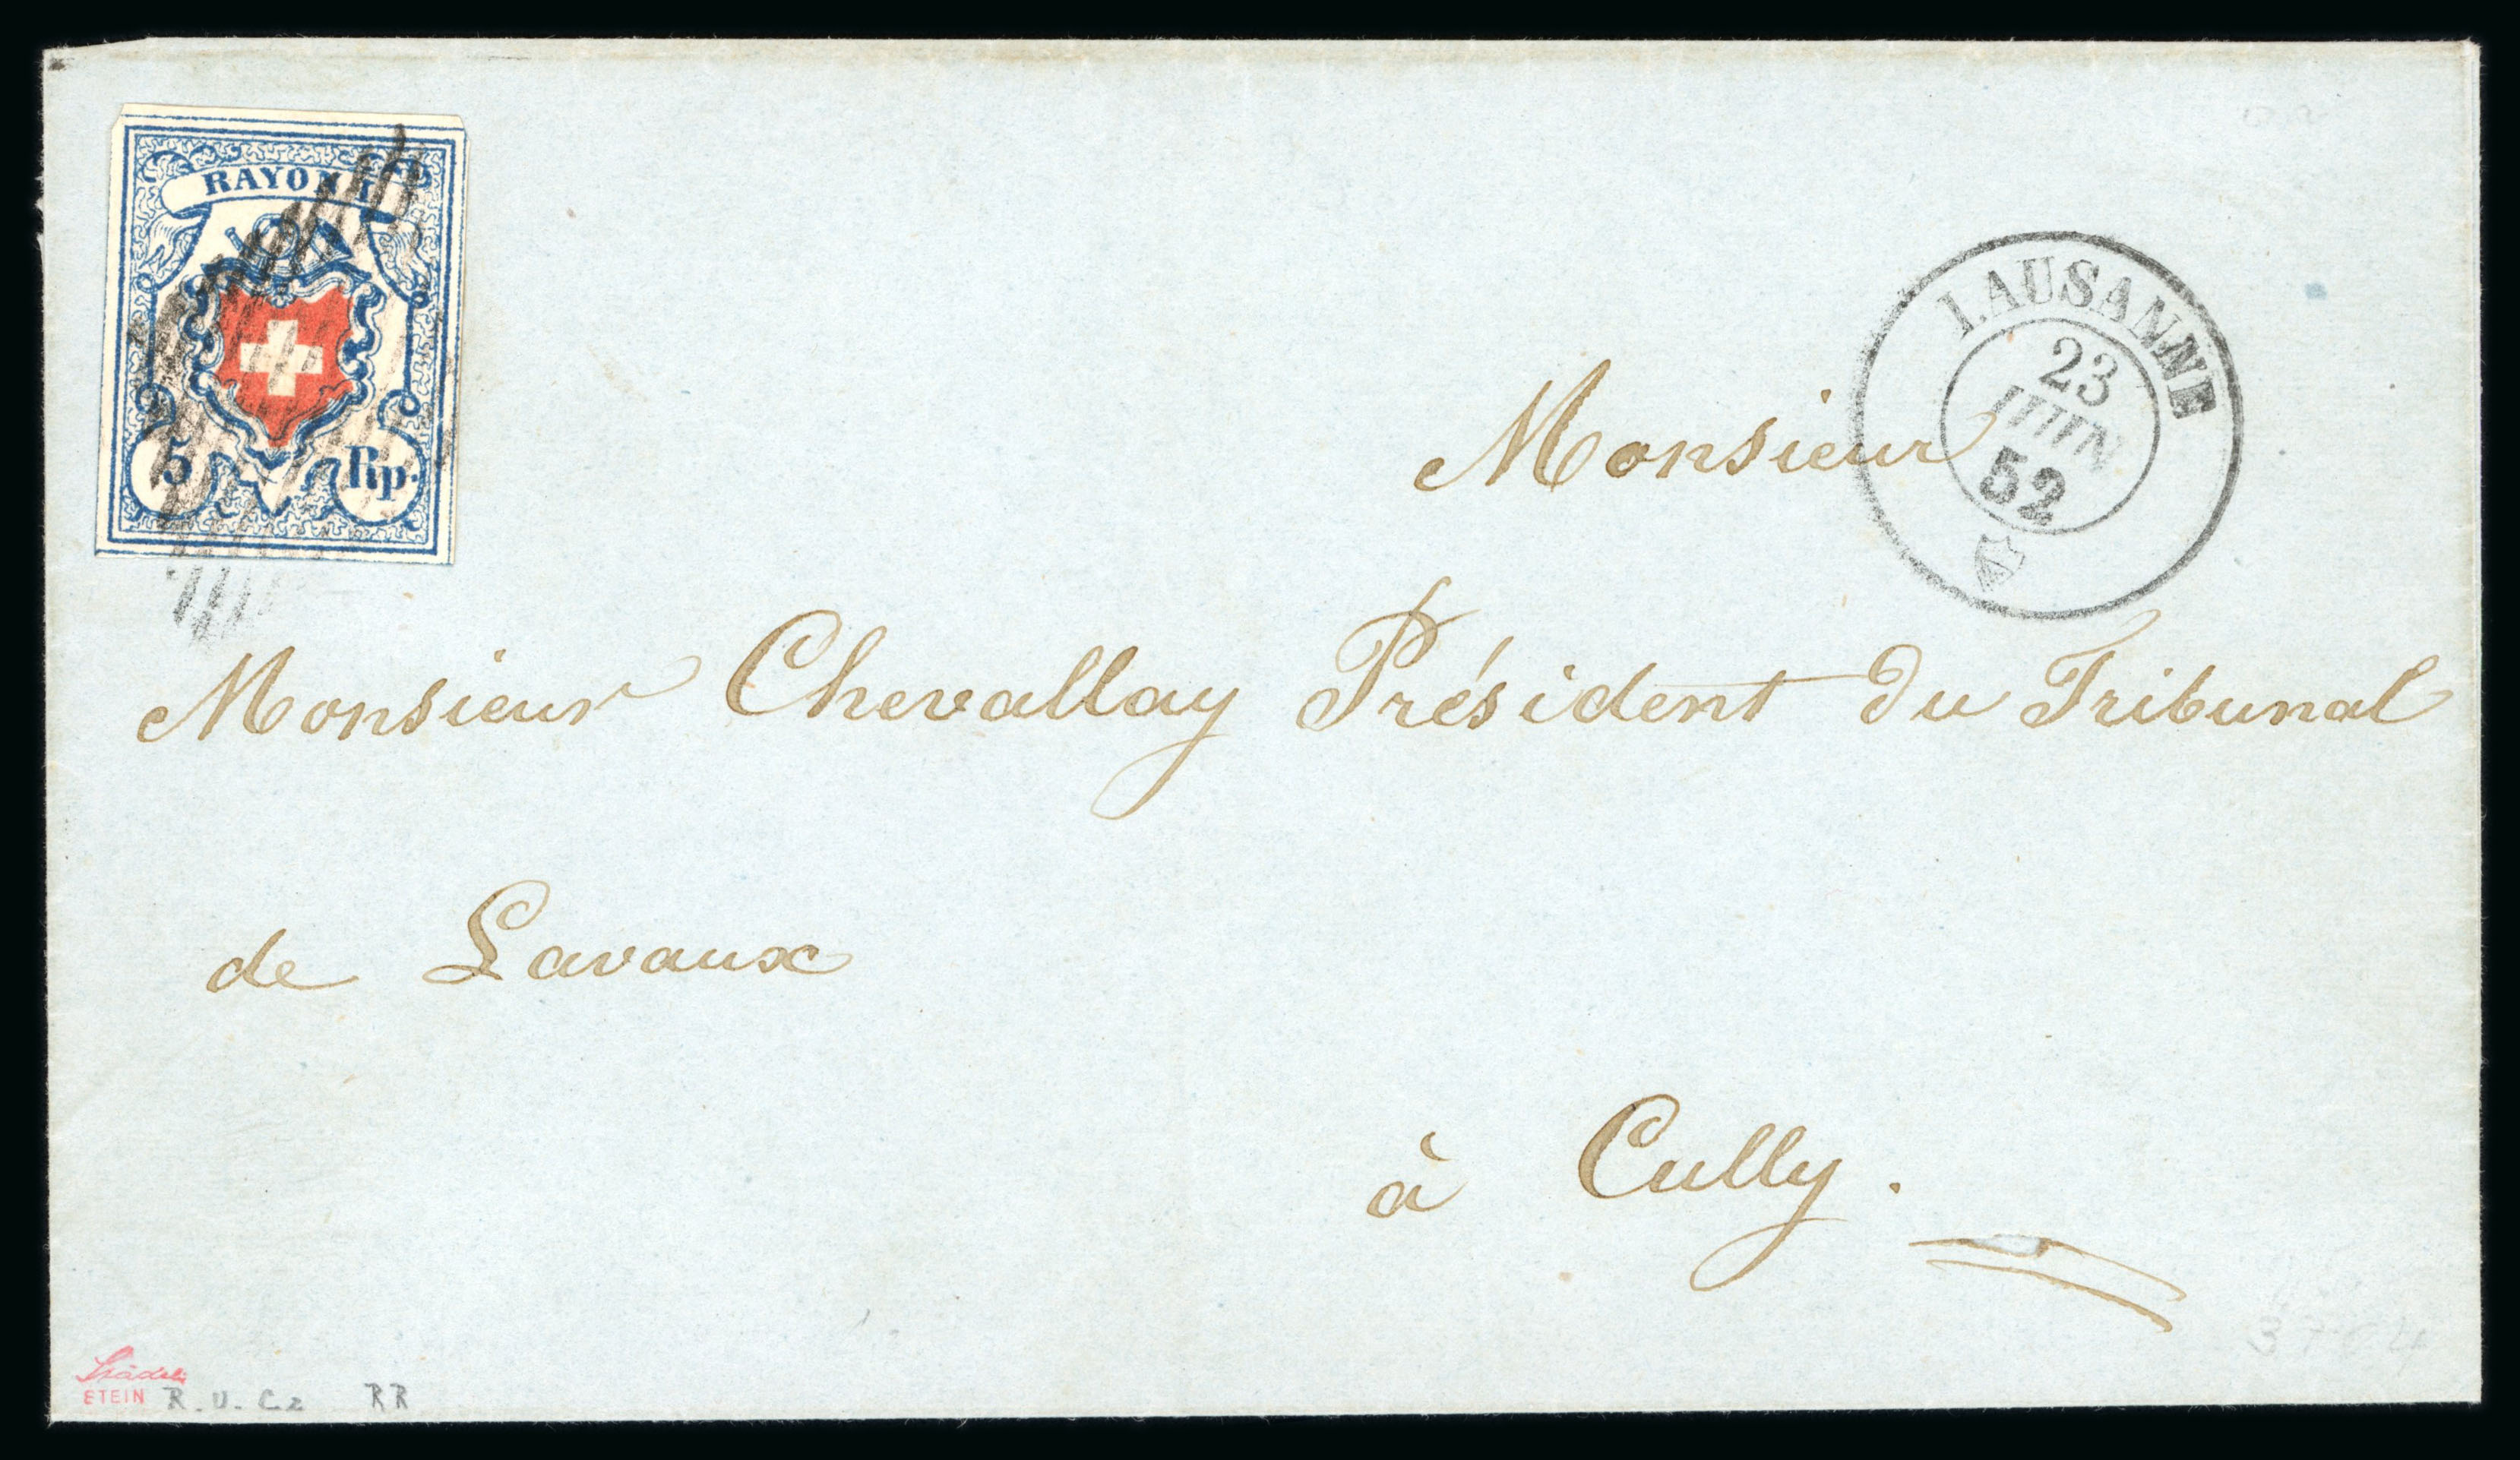 RAYON I
5 Rp.
LAUSANNE
23
JUIN
52
Monsieur
Monsieur Chevallay Président du Tribunal
de Lavaux
à Cully.
ETEIN R. U. C2 RR